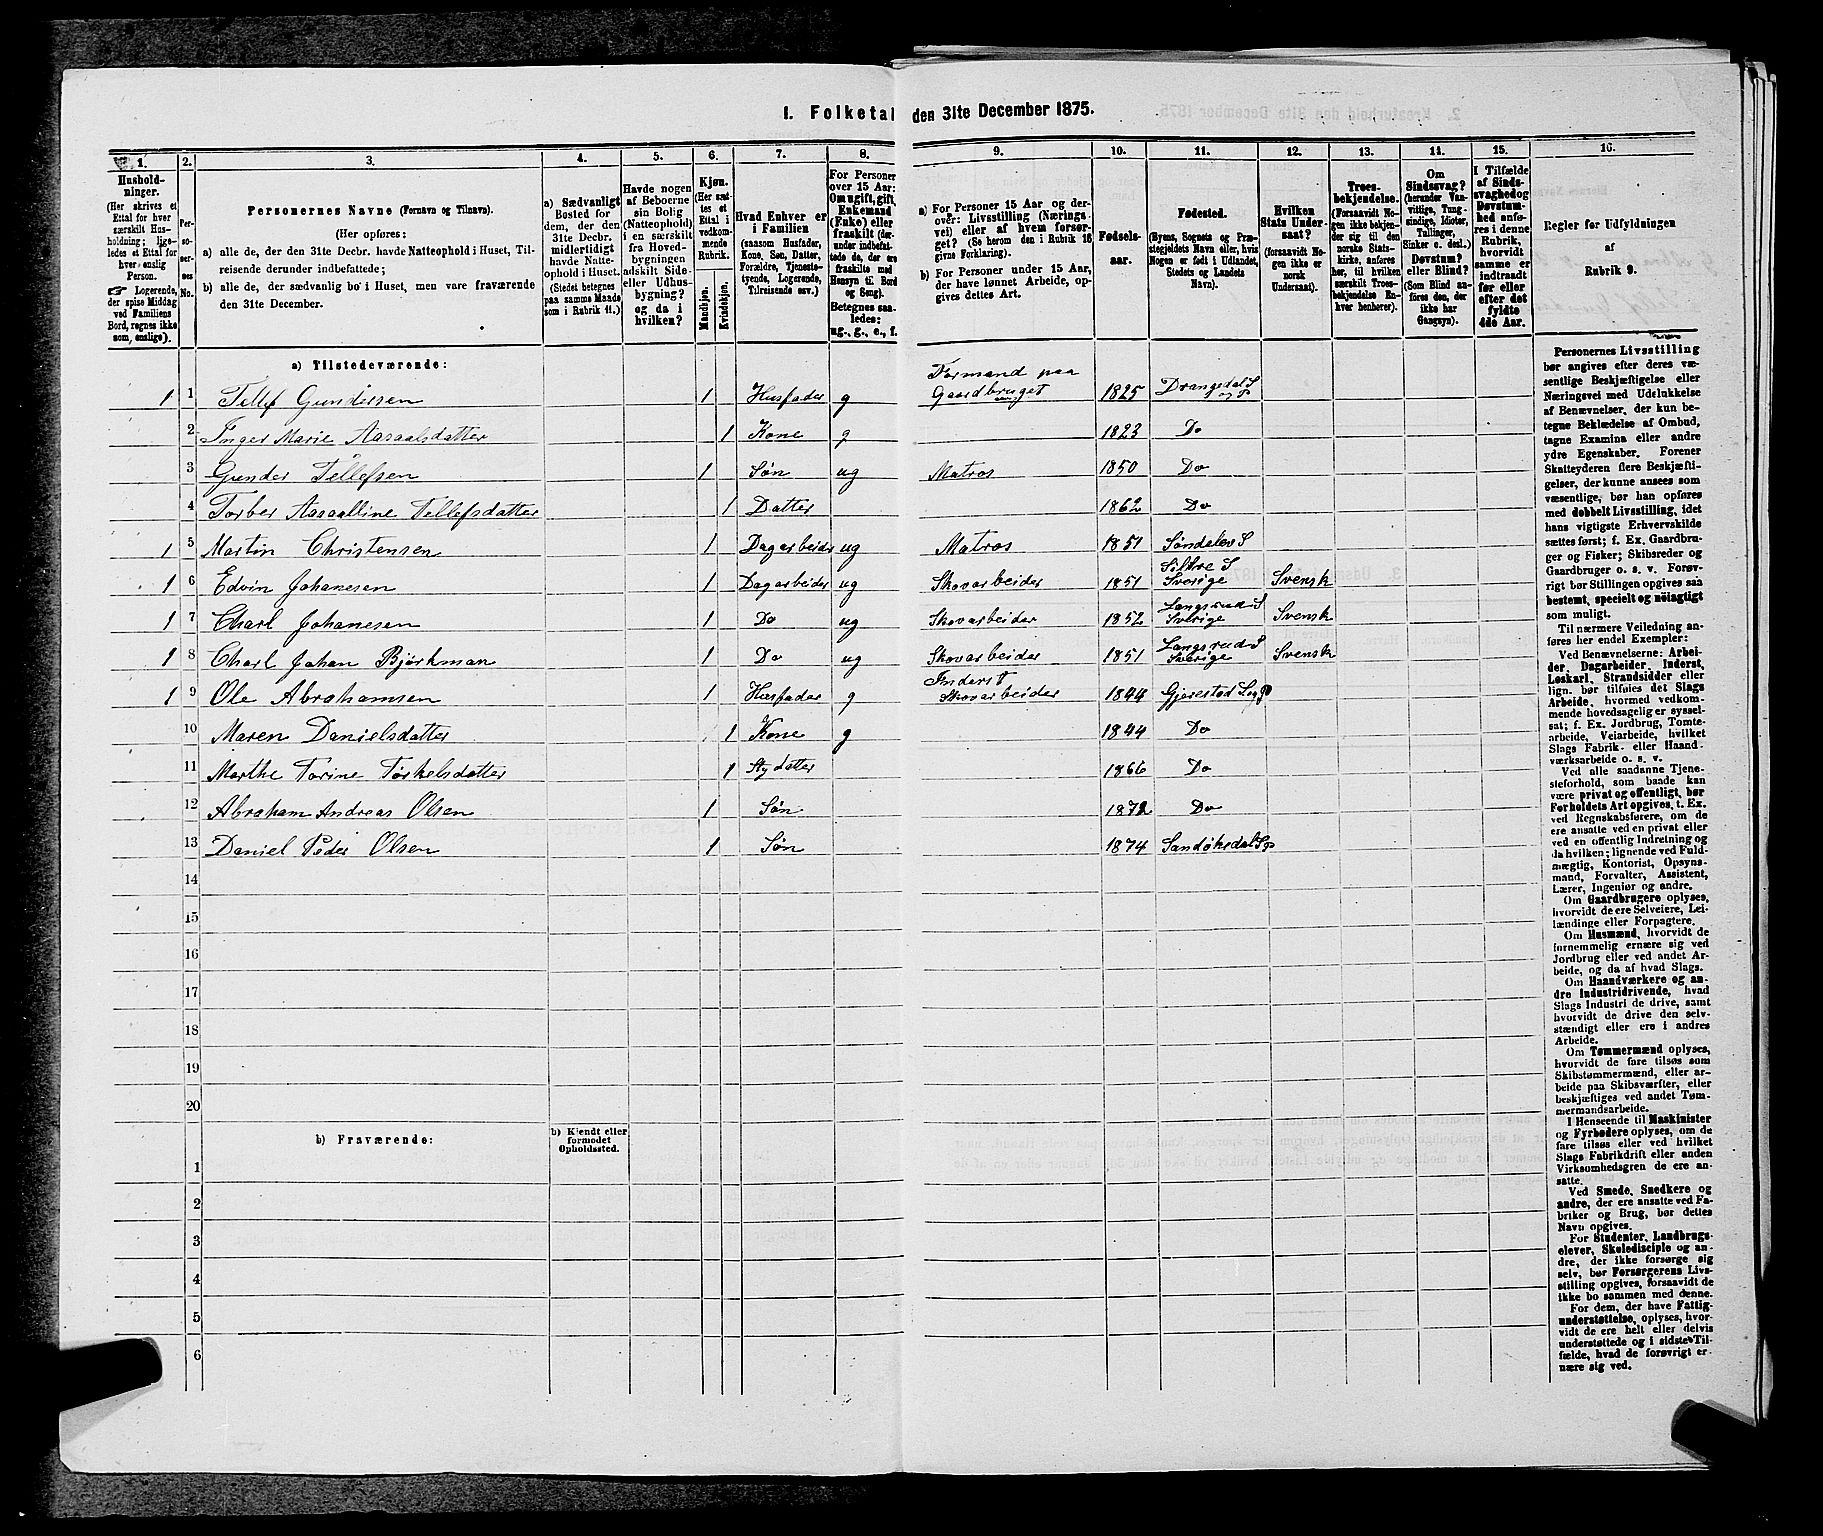 I. Folketal den 31te December 1875.
1. 2. 3. 4. 5. 6. 7. 8. 9. 10. 11. 12. 13. 14. 15. 16.
Husholdninger.
(Her skrives et
Ettal for hver
særskilt Husholdning; ligeledes et Ettal
for hver enslig
Person.
☞ Logerende,
der spise Middag
ved Familiens
Bord, regnes ikke
som enslige).
Personernes No.
Personernes Navne (Fornavn og Tilnavn).
(Her opføres:
a) alle de, der den 31te Decbr. havde Natteophold i Huset, Tilreisende derunder indbefattede;
b) alle de, der sædvanlig bo i Huset, men vare fraværende
den 31te December.
a) Sædvanligt
Bosted for
dem, der den
31te Decbr.
midlertidigt
havde Natteophold i Huset.
(Stedet betegnes
paa samme Maade
som i Rubrik 11.)
Havde nogen
af Beboerne
sin Bolig
(Natteophold)
i en særskilt
fra Hovedbygningen
adskilt Side-
eller Udhusbygning?
og da i
hvilken?
Kjøn.
(Her sættes et
Ettal i
vedkommende
Rubrik.
Mandkjøn.
Kvindekjøn.
Hvad Enhver er
i Familien
(saasom Husfader,
Kone, Søn, Datter,
Forældre, Tjenestetyende, Logerende,
Tilreisende osv.)
For Personer
over 15 Aar:
Om ugift, gift,
Enkemand
(Enke) eller
fraskilt (derunder indbefattede de, der ere
fraskilte med
Hensyn til Bord
og Seng).
Betegnes saaledes:
ug., g., e., f.
a) For Personer 15 Aar og derover: Livsstilling (Næringsvei) eller af hvem forsørget? (Se herom den i Rubrik 16
givne Forklaring).
b) For Personer under 15 Aar,
der have lønnet Arbeide, opgives dettes Art.
Fødselsaar.
Fødested.
(Byens, Sognets og Præstegjeldets Navn eller, hvis
Nogen er født i Udlandet,
Stedets og Landets
Navn).
Hvilken
Stats Undersaat?
(forsaavidt Nogen ikke er
norsk
Undersaat).
Troesbekjendelse.
(Forsaavidt Nogen ikke bekjender sig til den
norske Statskirke, anføres
her, til hvilken
særskilt Troesbekjendelse Enhver henhører).
Om
Sindssvag?
(herunder Vanvittige, Tungsindige, Idioter,
Tullinger,
Sinker o. desl.)
Døvstum?
eller Blind?
(Som Blind anføres den, der
ikke har
Gangsyn).
I Tilfælde
af Sindssvaghed og
Døvstumhed anføres i denne
Rubrik,
hvorvidt
samme er
indtraadt
før eller
efter det
fyldte
4de Aar.
Regler for Udfyldningen
af
Rubrik 9.
a) Tilstedeværende:
1 1 Tellef Gundersen 1 Husfader g Formand paa Gaardbruget 1825 Drangedal S og P
2 Inger Marie Aasaalsdatter 1 Kone g 1823 Do
3 Gunder Tellefsen 1 Søn ug Matros 1850 Do
4 Torber Aasaalline Tellefsdatter 1 Datter 1862 Do
1 5 Martin Christensen 1 Dagarbeider ug Matros 1851 Søndeløv S
1 6 Edvin Johanesen 1 Dagarbeider ug Skovarbeider 1851 Siltre S Sverige Svensk
1 7 Charl Johanesen 1 Do ug Skovarbeider 1852 Langsrud S Sverige Svensk
1 8 Charl Johan Bjørkman 1 Do ug Skovarbeider 1851 Langsrud S Sverige Svensk
1 9 Ole Abrahamsen 1 Husfader g Inderst Skovarbeider 1844 Gjerestad S og P
10 Maren Danielsdatter 1 Kone g 1844 Do
11 Marthe Torine Torkelsdatter 1 Stydatter 1866 Do
12 Abraham Andreas Olsen 1 Søn 1872 Do
13 Daniel Peder Olsen 1 Søn 1874 Sandøkedal S P
14
15
16
17
18
19
20
b) Fraværende:
b) Kjendt eller
formodet
Opholdssted.
1
2
3
4
5
6
Personernes Livsstilling
bør angives efter deres væsentlige Beskjæftigelse eller
Næringsvei med Udelukkelse
af Benævnelser, der kun betegne Beklædelse af Ombud,
tagne Examina eller andre
ydre Egenskaber. Forener
Skatteyderen flere Beskjæftigelser, der kunne ansees som
væsentlige, bør han opføres
med dobbelt Livsstilling, idet
hans vigtigste Erhvervskilde
sættes først; f. Ex. Gaardbruger og Fisker; Skibsreder og
Gaardbruger o. s. v. Forøvrigt bør Stillingen opgives saa
bestemt, specielt og nøiagtigt
som muligt.
Til nærmere Veiledning anføres her endel Exempler:
Ved Benævnelserne: Arbeider, Dagarbeider, Inderst,
Løskarl, Strandsidder eller
lign. bør tilføies det Slags
Arbeide, hvormed vedkommende hovedsagelig er sysselsat; f. Ex. Jordbrug, Tomtearbeide, Veiarbeide, hvilket
Slags Fabrik- eller Haandværksarbeide o. s. v.
Ved alle saadanne Tjenesteforhold, som baade kan
være privat og offentligt, bør
Forholdets Art opgives, t. Ex.
ved Regnskabsførere, om de
ere ansatte ved en privat eller
ved en offentlig Indretning og
da hvilken; lignende ved Fuldmægtig, Kontorist, Opsynsmand, Forvalter, Assistent,
Lærer, Ingeniør og andre.
Om Gaardbrugere oplyses,
hvorvidt de ere Selveiere, Leilændinge eller Forpagtere.
Om Husmænd, hvorvidt de
fornemmelig ernære sig ved
Jordbrug eller ved andet Arbeide, og da af hvad Slags.
Om Haandværkere og andre Industridrivende, hvad
Slags Industri de drive, samt
hvorvidt de drive den selvstændigt eller ere i andres
Arbeide.
Om Tømmermænd oplyses,
hvorvidt de fare tilsøs som
Skibstømmermænd, eller arbeide paa Skibsværfter, eller
beskjæftiges ved andet Tømmermandsarbeide.
I Henseende til Maskinister
og Fyrbødere oplyses, om de
fare tilsøs eller ved hvilket
Slags Fabrikdrift eller anden
Virksomhedsgren de ere ansatte.
Ved Smede, Snedkere og
andre, der ere ansatte ved Fabriker og Brug, bør dettes
Navn opgives.
For Studenter, Landbrugselever, Skoledisciple og andre, der ikke forsørge sig
selv, bør Forsørgerens Livsstilling opgives, forsaavidt de
ikke bo sammen med denne.
For dem, der have Fattigunderstøttelse, oplyses, hvorvidt de ere helt eller delvis
understøttede og i sidste Tilfælde, hvad de forøvrigt ernære sig ved.